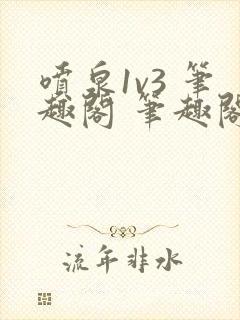 噴泉1v3 筆
趣閣 筆趣閣
流年非水